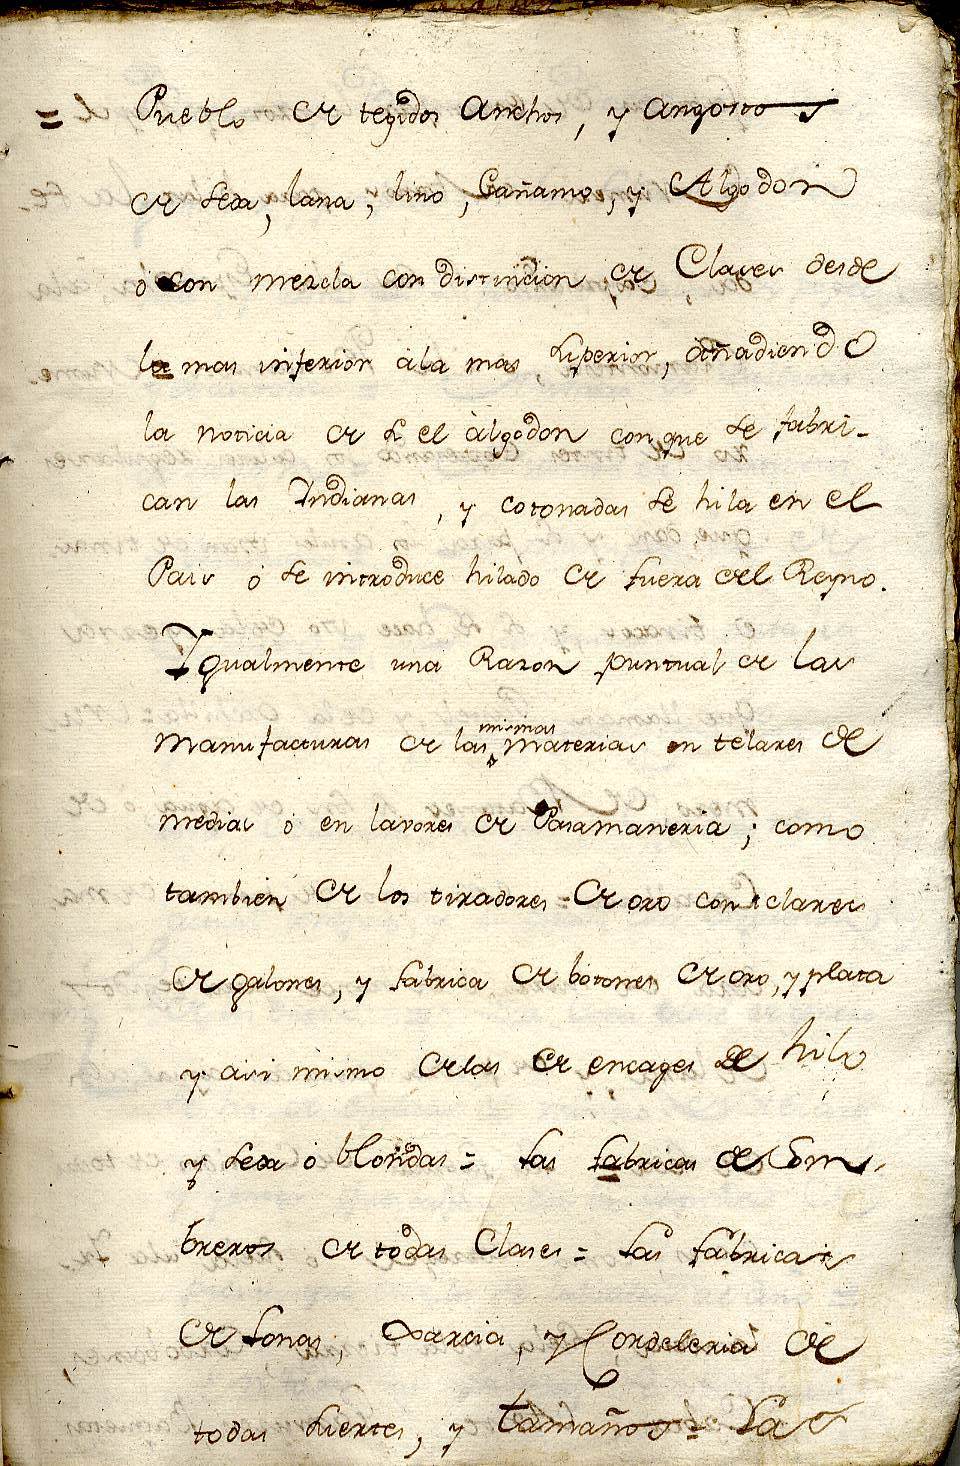 = Pueblo de tegidos Anchos, y angostos
de seda, lana, lino, Cañamo, y Algodon
ó con mezcla con distincion de Clases desde
la mas inferior àla mas, superior, añadiendo
la noticia de si el àlgodon conque se fabri-
can las Indianas, y cotonadas se hila en el
Pais ó se introduce hilado de fuera del Reyno.
Igualmente una Razon puntual de las
Manufacturas de las mismas Materias en telares de
medias ó en lavores de Pasamaneria; como
tambien de los tiradores de oro con clases
de galones, y fabrica de botones de oro, y plata
y asi mismo delas de encages de hilo
y seda ó blondas = las fabricas de Som-
breros de todas Clases = las fabricas
de lonas, Xarcia, y Cordeleria de
todas suertes, y tamaños = Las